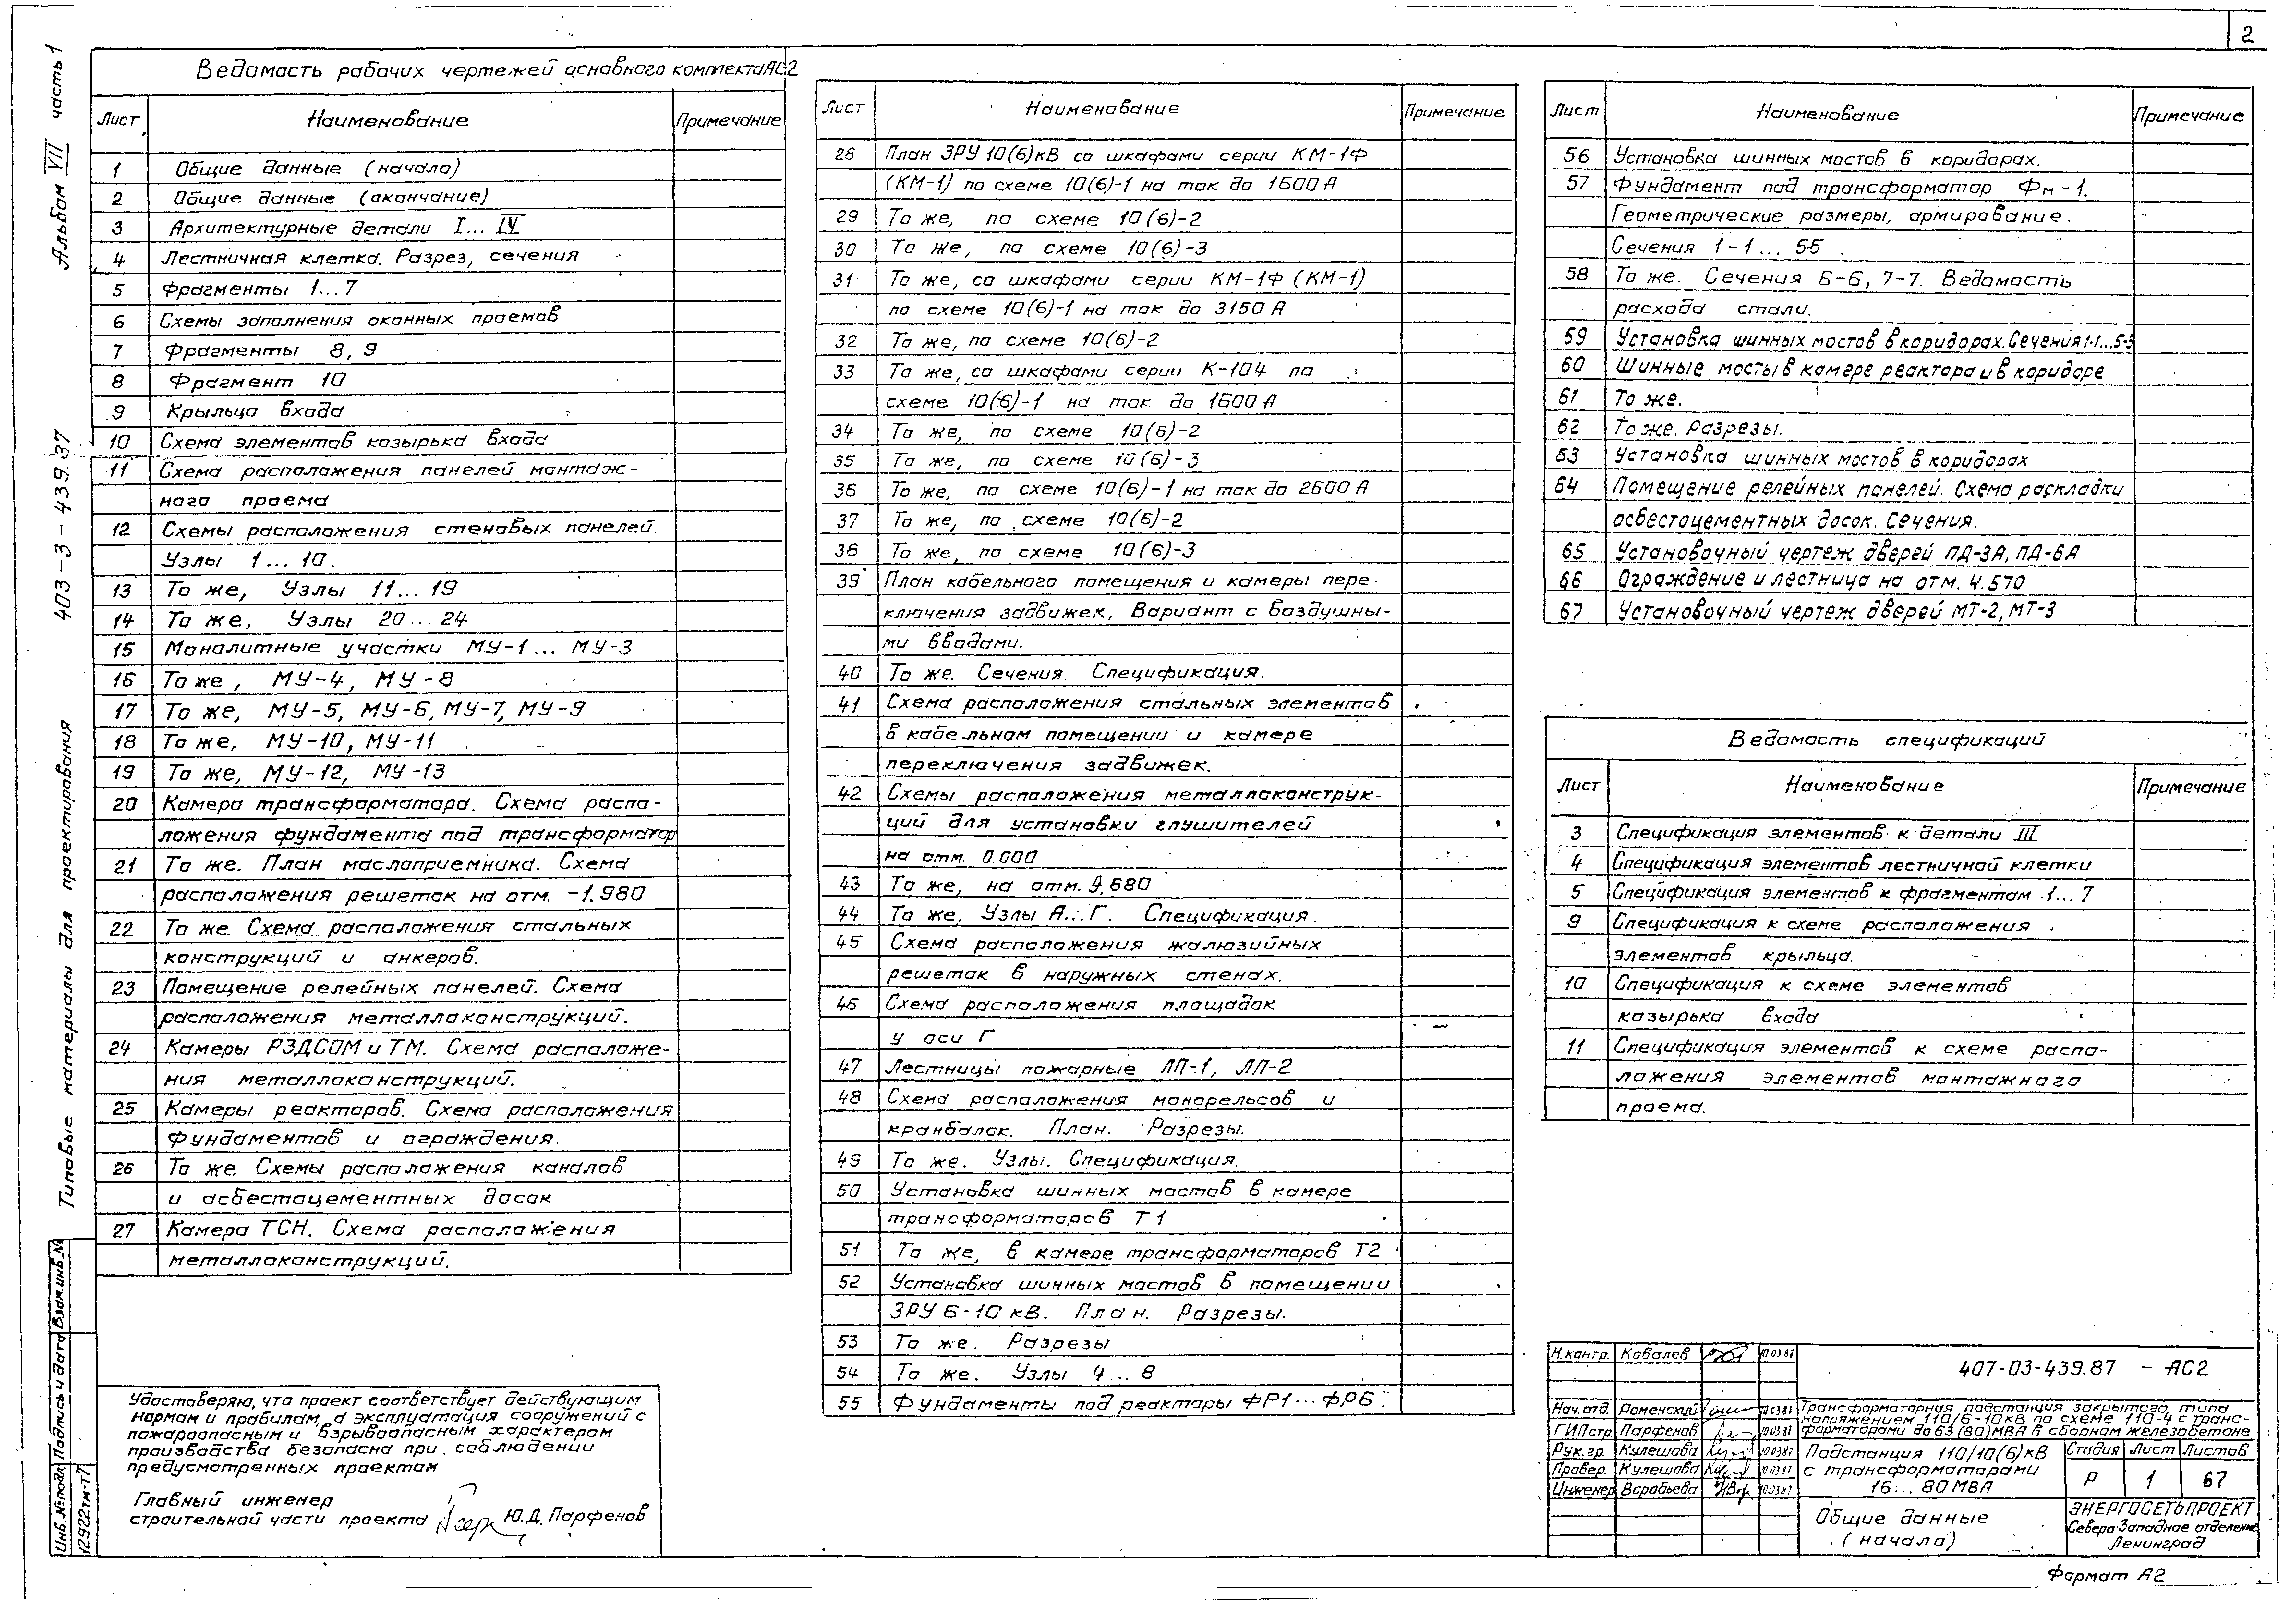 2
Альбом VII часть 1
403-3-439.87
Типовые материалы для проектирования
Ведомость рабочих чертежей основного комплекта АС2
Лист Наименование Примечание
1 Общие данные (начало)
2 Общие данные (окончание)
3 Архитектурные детали I... IV
4 Лестничная клетка. Разрез, сечения
5 Фрагменты 1...7
6 Схемы заполнения оконных проемов
7 Фрагменты 8, 9
8 Фрагмент 10
9 Крыльца входа
10 Схема элементов козырька входа
11 Схема расположения панелей монтаж-
ного проема
12 Схемы расположения стеновых панелей.
Узлы 1 ... 10.
13 То же, Узлы 11... 19
14 То же, Узлы 20 ... 24
15 Монолитные участки МУ-1 ... МУ-3
16 То же, МУ-4, МУ-8
17 То же, МУ-5, МУ-6, МУ-7, МУ-9
18 То же, МУ-10, МУ-11
19 То же, МУ-12, МУ-13
20 Камера трансформатора. Схема распо-
ложения фундамента под трансформатор
21 То же. План маслоприемника. Схема
расположения решеток на отм. -1.980
22 То же. Схема расположения стальных
конструкций и анкеров.
23 Помещение релейных панелей. Схема
расположения металлоконструкций.
24 Камеры РЗДСОМ и ТМ. Схема расположе-
ния металлоконструкций.
25 Камеры реакторов. Схема расположения
фундаментов и ограждения.
26 То же. Схемы расположения каналов
и асбестоцементных досок
27 Камера ТСН. Схема расположения
металлоконструкций.
Лист Наименование Примечание
28 План ЗРУ 10(6)кВ со шкафами серии КМ-1Ф
(КМ-1) по схеме 10(6)-1 на ток до 1600 А
29 То же, по схеме 10(6)-2
30 То же, по схеме 10(6)-3
31 То же, со шкафами серии КМ-1Ф (КМ-1)
по схеме 10(6)-1 на ток до 3150 А
32 То же, по схеме 10(6)-2
33 То же, со шкафами серии К-104 по
схеме 10(6)-1 на ток до 1600 А
34 То же, по схеме 10(6)-2
35 То же, по схеме 10(6)-3
36 То же, по схеме 10(6)-1 на ток до 2600 А
37 То же, по схеме 10(6)-2
38 То же, по схеме 10(6)-3
39 План кабельного помещения и камеры пере-
ключения задвижек, Вариант с воздушны-
ми вводами.
40 То же. Сечения. Спецификация.
41 Схема расположения стальных элементов
в кабельном помещении и камере
переключения задвижек.
42 Схемы расположения металлоконструк-
ций для установки глушителей
на отм. 0.000
43 То же, на отм. 9,680
44 То же, Узлы А...Г. Спецификация.
45 Схема расположения жалюзийных
решеток в наружных стенах.
46 Схема расположения площадок
у оси Г
47 Лестницы пожарные ЛП-1, ЛП-2
48 Схема расположения монорельсов и
кранбалок. План. Разрезы.
49 То же. Узлы. Спецификация.
50 Установка шинных мостов в камере
трансформаторов Т1
51 То же, в камере трансформаторов Т2
52 Установка шинных мостов в помещении
ЗРУ 6-10 кВ. План. Разрезы.
53 То же. Разрезы
54 То же. Узлы 4 ... 8
55 Фундаменты под реакторы ФР1...ФР6.
Лист Наименование Примечание
56 Установка шинных мостов в коридорах.
57 Фундамент под трансформатор Фм-1.
Геометрические размеры, армирование.
Сечения 1-1 ... 5-5
58 То же. Сечения 6-6, 7-7. Ведомость
расхода стали.
59 Установка шинных мостов в коридорах. Сечения 1-1...5-5
60 Шинные мосты в камере реактора и в коридоре
61 То же.
62 То же. Разрезы.
63 Установка шинных мостов в коридорах
64 Помещение релейных панелей. Схема раскладки
асбестоцементных досок. Сечения.
65 Установочный чертеж дверей ПД-3А, ПД-6А
66 Ограждение и лестница на отм. 4.570
67 Установочный чертеж дверей МТ-2, МТ-3
Ведомость спецификаций
Лист Наименование Примечание
3 Спецификация элементов к детали III
4 Спецификация элементов лестничной клетки
5 Спецификация элементов к фрагментам 1... 7
9 Спецификация к схеме расположения
элементов крыльца.
10 Спецификация к схеме элементов
козырька входа
11 Спецификация элементов к схеме распо-
ложения элементов монтажного
проема.
Удостоверяю, что проект соответствует действующим
нормам и правилам, а эксплуатация сооружений с
пожароопасным и взрывоопасным характером
производства безопасна при соблюдении
предусмотренных проектом
Главный инженер
строительной части проекта Ю.Д. Парфенов
Инв.№подл. Подпись и дата Взам.инв.№
12922тм-т7
Н.контр. Ковалев 10.03.87
Нач.отд. Роменский 10.03.87
ГИПстр. Парфенов 10.03.87
Рук.гр. Кулешова 10.03.87
Провер. Кулешова 10.03.87
Инженер Воробьева 10.03.87
407-03-439.87 - АС2
Трансформаторная подстанция закрытого типа
напряжением 110/6-10кВ по схеме 110-4 с транс-
форматорами до 63 (80) МВА в сборном железобетоне
Подстанция 110/10(6)кВ
с трансформаторами
16... 80 МВА
Стадия Лист Листов
Р 1 67
Общие данные
(начало)
ЭНЕРГОСЕТЬПРОЕКТ
Северо-Западное отделение
Ленинград
Формат А2